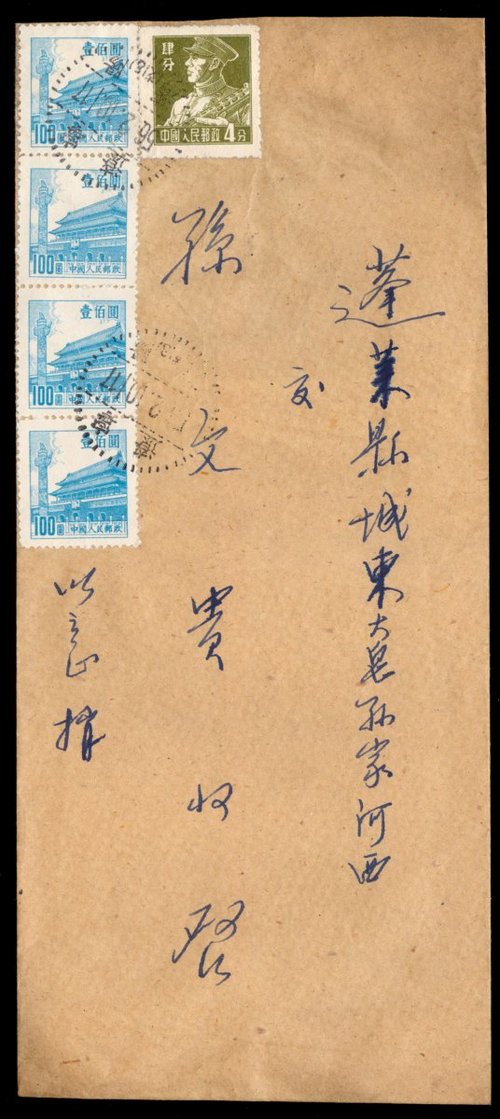 蓬萊縣城東大皂孙家河西
交
孫文貴收啓
捎
肆分
中國人民郵政4分
壹佰圓
100圓中國人民郵政
壹佰圓
100圓中國人民郵政
壹佰圓
100圓中國人民郵政
壹佰圓
100圓中國人民郵政